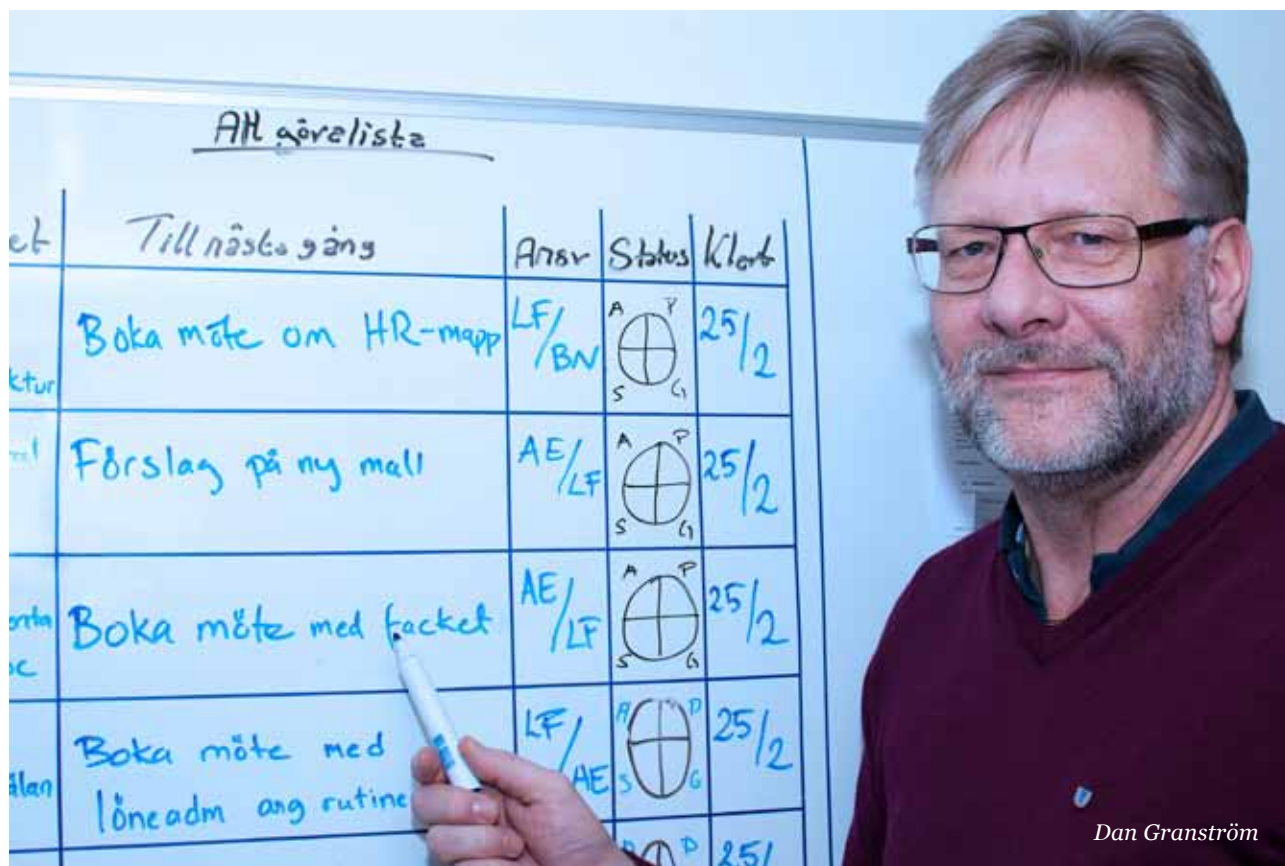 Att göralista
et Till nästa gång Ansv Status Klart
ktur Boka möte om HR-mapp LF/BN A P S G 25/2
Förslag på ny mall AE/LF A P S G 25/2
Boka möte med facket AE/LF A P S G 25/2
älan Boka möte med LF/AE A P S G 25/2
löneadm ang rutine
P 25/
Dan Granström